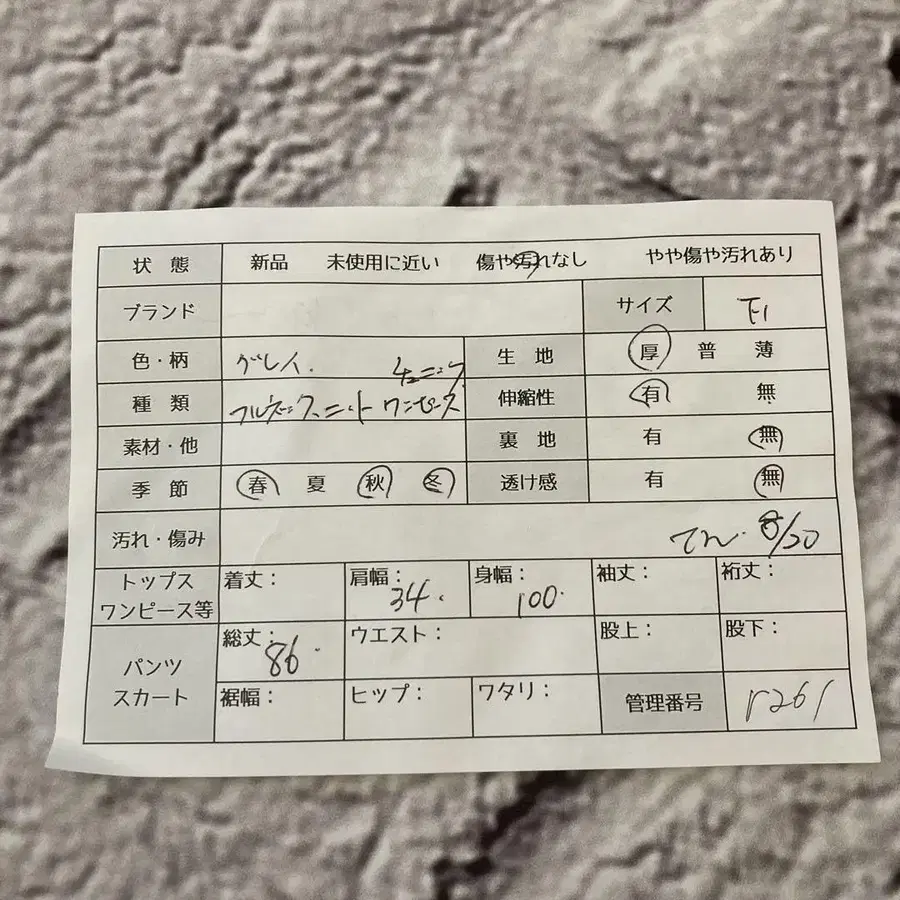 状態 新品 未使用に近い 傷や汚れなし やや傷や汚れあり
ブランド サイズ
色・柄 グレイ. 生地 厚 普 薄
チュニック
種類 フルネックニットワンピース 伸縮性 有 無
素材・他 裏地 有 無
季節 春 夏 秋 冬 透け感 有 無
汚れ・傷み 8/20
トップス ワンピース等 着丈: 肩幅: 34. 身幅: 100. 袖丈: 裄丈:
パンツ スカート 総丈: 86. ウエスト: 股上: 股下:
裾幅: ヒップ: ワタリ: 管理番号 r261